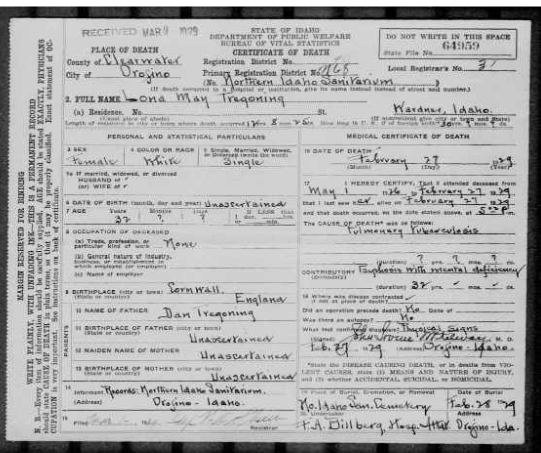 RECEIVED MAR 1929
STATE OF IDAHO
DEPARTMENT OF PUBLIC WELFARE
BUREAU OF VITAL STATISTICS
CERTIFICATE OF DEATH
DO NOT WRITE IN THIS SPACE
State File No. 64959
PLACE OF DEATH
County of Clearwater
Registration District No.
Local Registrar's No. 3
City of Orofino
Primary Registration District No.
(No. Northern Idaho Sanitarium
2. FULL NAME Lond May Tregoning
(a) Residence. No. St. Wardner, Idaho.
(Usual place of abode)
PERSONAL AND STATISTICAL PARTICULARS
MEDICAL CERTIFICATE OF DEATH
3 SEX
4 COLOR OR RACE
5 Single, Married, Widowed,
Female White Single
16 DATE OF DEATH
February 27 1929
(Month) (Day) (Year)
5a If married, widowed, or divorced
HUSBAND of
(or) WIFE of
17 I HEREBY CERTIFY, That I attended deceased from
May 1 1926 to February 27 1929
that I last saw her alive on February 27 1929
and that death occurred, on the date stated above, at
6 DATE OF BIRTH (month, day and year) Unascertained
7 AGE Years Months Days
32 ? ?
The CAUSE OF DEATH was as follows:
Pulmonary Tuberculosis
8 OCCUPATION OF DECEASED
(a) Trade, profession, or
particular kind of work None
(b) General nature of industry,
business, or establishment in
which employed (or employer)
(c) Name of employer
CONTRIBUTORY Psychosis with mental deficiency
(duration) 32 yrs.
9 BIRTHPLACE (city or town) Cornwall,
(State or country) England
18 Where was disease contracted
if not at place of death?
Did an operation precede death? No Date of
Was there an autopsy? No
What test confirmed diagnosis? Physical Signs
(Signed) M. D.
Feb. 27 1929 (Address) Orofino - Idaho.
10 NAME OF FATHER Dan Tregoning
11 BIRTHPLACE OF FATHER (city or town)
(State or country) Unascertained
12 MAIDEN NAME OF MOTHER
Unascertained
13 BIRTHPLACE OF MOTHER (city or town)
(State or country) Unascertained
PARENTS
*State the DISEASE CAUSING DEATH, or in deaths from VIOLENT
CAUSES, state (1) MEANS AND NATURE OF INJURY,
and (2) whether ACCIDENTAL, SUICIDAL, or HOMICIDAL.
14 Informant Records: Northern Idaho Sanitarium.
(Address) Orofino - Idaho.
19 Place of Burial, Cremation, or Removal Date of Burial
No. Idaho San. Cemetery Feb. 28 1929
20 Undertaker Address
F. A. Dillberg, Hosp. Att. Orofino - Ida.
15 Filed
Registrar
MARGIN RESERVED FOR BINDING
WRITE PLAINLY, WITH UNFADING INK—THIS IS A PERMANENT RECORD
N. B.—Every item of information should be carefully supplied. AGE should be stated EXACTLY. PHYSICIANS
should state CAUSE OF DEATH in plain terms, so that it may be properly classified. Exact statement of OCCUPATION
is very important. See instructions on back of certificate.